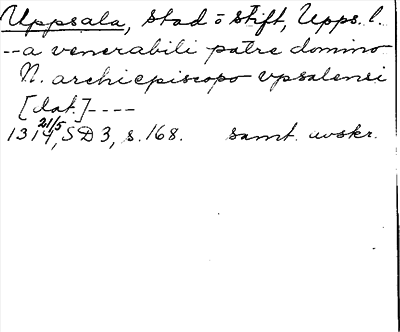 Uppsala, stad o stift, Upps. l.
--a venerabili patre domino
N. archiepiscopo vpsalensi
[lat.]----
1314 21/5, SD 3, s. 168. samt. avskr.